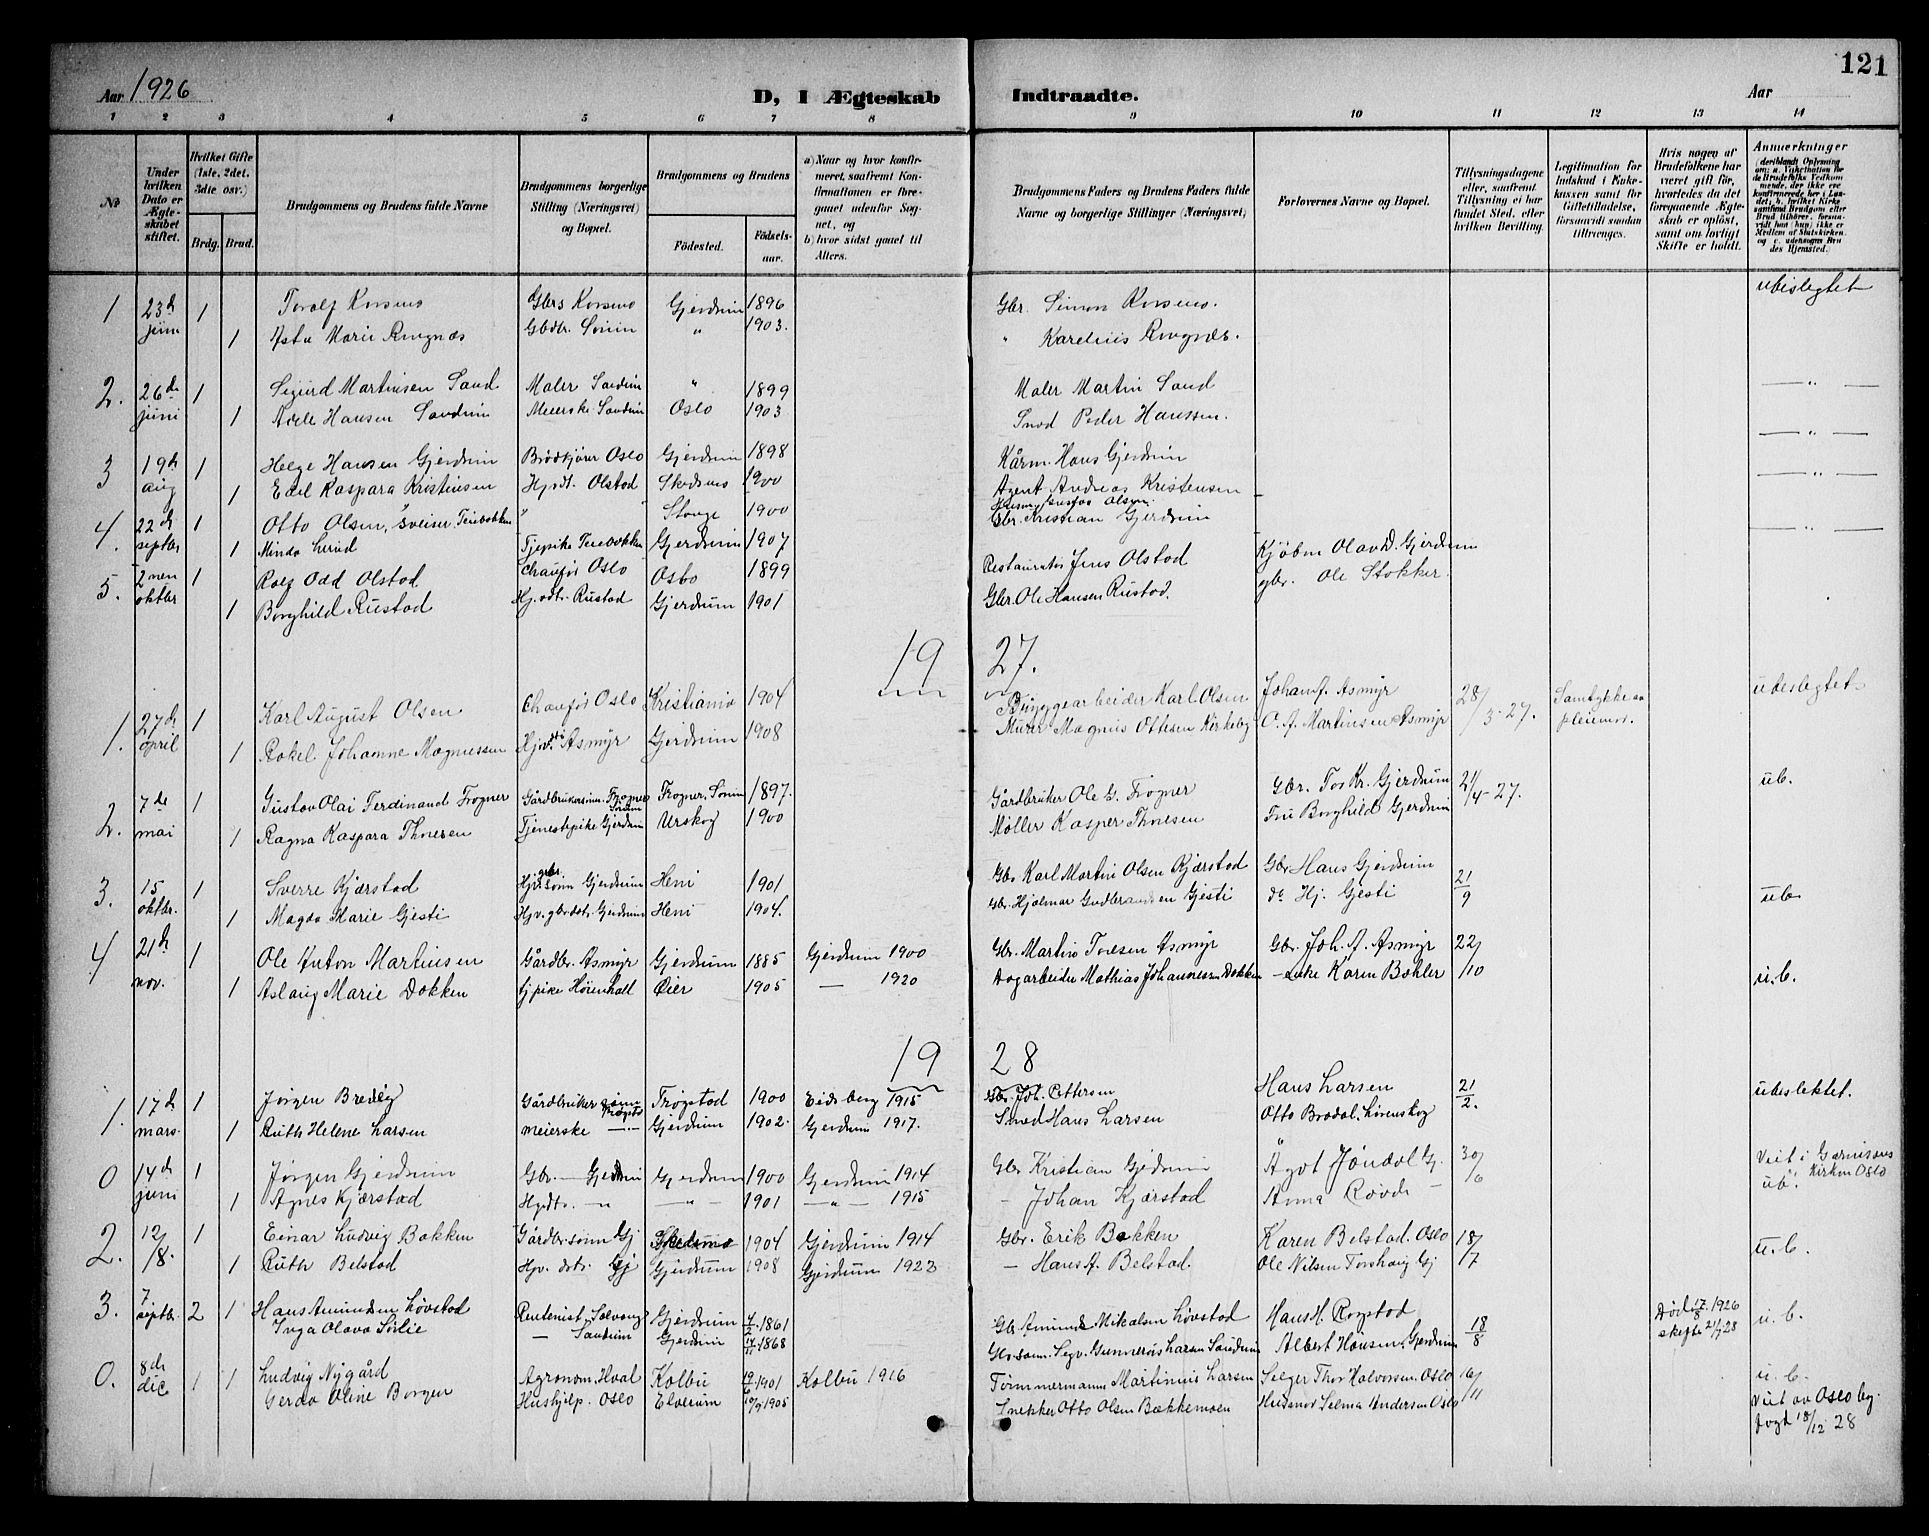 Aar 1926
D, I Ægteskab Indtraadte.
Aar
121
1 2 3 4 5 6 7 8 9 10 11 12 13 14
No
Under hvilken Dato er Ægteskabet stiftet.
Hvilket Gifte (1ste, 2det, 3die osv.)
Brdg. Brud.
Brudgommens og Brudens fulde Navne
Brudgommens borgerlige Stilling (Næringsvei) og Bopæl.
Brudgommens og Brudens
Fødested. Fødselsaar.
a) Naar og hvor konfirmeret, saafremt Konfirmationen er foregaaet udenfor Sognet, og b) hvor sidst gaaet til Alters.
Brudgommens Faders og Brudens Faders fulde Navne og borgerlige Stillinger (Næringsvei)
Forlovernes Navne og Bopæl.
Tillysningsdagene eller, saafremt Tillysning ei har fundet Sted, efter hvilken Bevilling.
Legitimation for Indskud i Enkekassen samt for Giftetilladelse, forsaavidt saadan tiltrænges.
Hvis nogen af Brudefolkene har været gift før, hvorledes da det foregaaende Ægteskab er opløst, samt om lovligt Skifte er holdt.
Anmerkninger
1 23d juni 1 Toralf Korsmo Gbrs Korsmo Gjerdrum 1896 Gbr. Simon Korsmo. ubeslegtet
1 Asta Marie Ringnæs Gbdtr. Sørum " 1903. " Karelius Ringnæs.
2. 26de juni 1 Sigurd Martinsen Sand Maler Sandum " 1899 Maler Martin Sand — " —
1 Adele Hansen Sandum Meierske Sandum Oslo 1903 Smed Peder Hanssen.
3 19d aug 1 Helge Hansen Gjerdrum Brødkjører Oslo Gjerdrum 1898 Kårm. Hans Gjerdrum — " —
1 Edel Kaspara Kristinsen Hjvdt. Olstad Skedsmo 1900 Agent Andreas Kristensen — " —
4. 22d septbr 1 Otto Olsen, sveiser Teiebakken " Stange 1900 Gustav Olsen
1 Minda Lerud Tjepike Teiebakken Gjerdrum 1907 Gbr. Kristian Gjerdrum — " —
5. 2nen oktbr 1 Rolf Odd Olstad Chauför Oslo Oslo 1899 Restauratør Jens Olstad Kjøbm Olav D. Gjerdrum
1 Borghild Rustad Hj.vdtr. Rustad Gjerdrum 1901 Gbr. Ole Hansen Rustad. gbr. Ole Stokker.
1927.
1. 27d april 1 Karl August Olsen Chauför Oslo Kristiania 1904 Byggearbeider Karl Olsen Johan A. Asmyr 28/3-27. Samtykke av pleiemor. ubeslegtet
1 Rakel Johanne Magnussen Hjv.dt Asmyr Gjerdrum 1908 Murer Magnus Ottesen Kirkeby O. A. Martinsen Asmyr
2. 7de mai 1 Gustav Olai Ferdinand Frogner Gårdbrukersønn. Frogner Sørum Frogner, Sørum 1897. Gårdbruker Ole G. Frogner Gbr. Tos Kr. Gjerdrum 21/4-27. ub.
1 Ragna Kaspara Thoresen Tjenestepike Gjerdrum Urskog 1900 Møller Kasper Thoresen Fru Borghild Gjerdrum
3. 15 oktbr. 1 Sverre Kjærstad Hjv. gbr sønn Gjerdrum Heni 1901 Gbr Karl Martin Olsen Kjærstad Gbr Hans Gjerdrum 21/9 ub
1 Magda Marie Gjesti Hjv. gbrdtr. Gjerdrum Heni 1904. Gbr. Hjalmar Gudbrandsen Gjesti do Hj. Gjesti
4 21d nov. 1 Ole Anton Martinsen Gårdbr. Asmyr Gjerdrum 1885 Gjerdrum 1900 Gbr. Martin Toresen Asmyr Gbr. Joh. A. Asmyr 22/10 u.b.
1 Aslaug Marie Dokken tjpike Hønenhall Øier 1905 — 1920 Dagarbeider Mathias Johannessen Dokken — Enke Karen Bøhler
1928
1. 17d mars. 1 Jørgen Bredlig Gårdbruker sønn Trøgst. Trøgstad 1900 Eidsberg 1915 Gbr. Joh. Ottersen Hans Larsen 21/2. ubeslektet.
1 Ruth Helene Larsen meierske —"— Gjerdrum 1902. Gjerdrum 1917. Smed Hans Larsen Otto Brodal, Lørenskog
0 14d juni 1 Jørgen Gjerdrum Gbr. — Gjerdrum Gjerdrum 1900 Gjerdrum 1914 Gbr Kristian Gjerdrum Ågot Jøndal Gj. 30/6 Viet i Garnisons Kirken Oslo ub.
1 Agnes Kjærstad Hjvdtr. —"— —"— 1901 —"— 1915 — Johan Kjærstad Anna Røvde —
2. 12/8. 1 Einar Ludvig Bakken Gårdbr.sønn Gj Skedsmo 1904 Gjerdrum 1914 Gbr. Erik Bakken Karen Belstad. Oslo 18/7 u.b.
1 Ruth Belstad Hjv. dtr. Gj Gjerdrum 1908 Gjerdrum 1923 — Hans A. Belstad. Ole Nilsen Torshaug Gj
3. 7 septb. 2 1 Hans Amundsen Løvstad Rentenist Solvang Gjerdrum 4/2 1861 Gbr Amund Mikalsen Løvstad Hans H. Rogstad 18/8 Død 17/8 1926 skifte 21/7 28 u.b.
Inga Olava Sørlie — Sandum Gjerdrum 14/11 1868 Albert Hansen, Gjerdrum
0. 8de dec 1 1 Ludvig Nygård Agronom. Hval Kolbu 19/6 1901 Kolbu 1916 Tømmermann Martinius Larsen Selger Thor Halvorsen. Oslo 16/11 u.b.
Gerda Oline Borgen Hushjelp. Oslo Elverum 10/9 1905 Snekker Otto Olsen Bækkemoen Husmor Selma Andersen Oslo Viet av Oslo byfogd 18/12 28